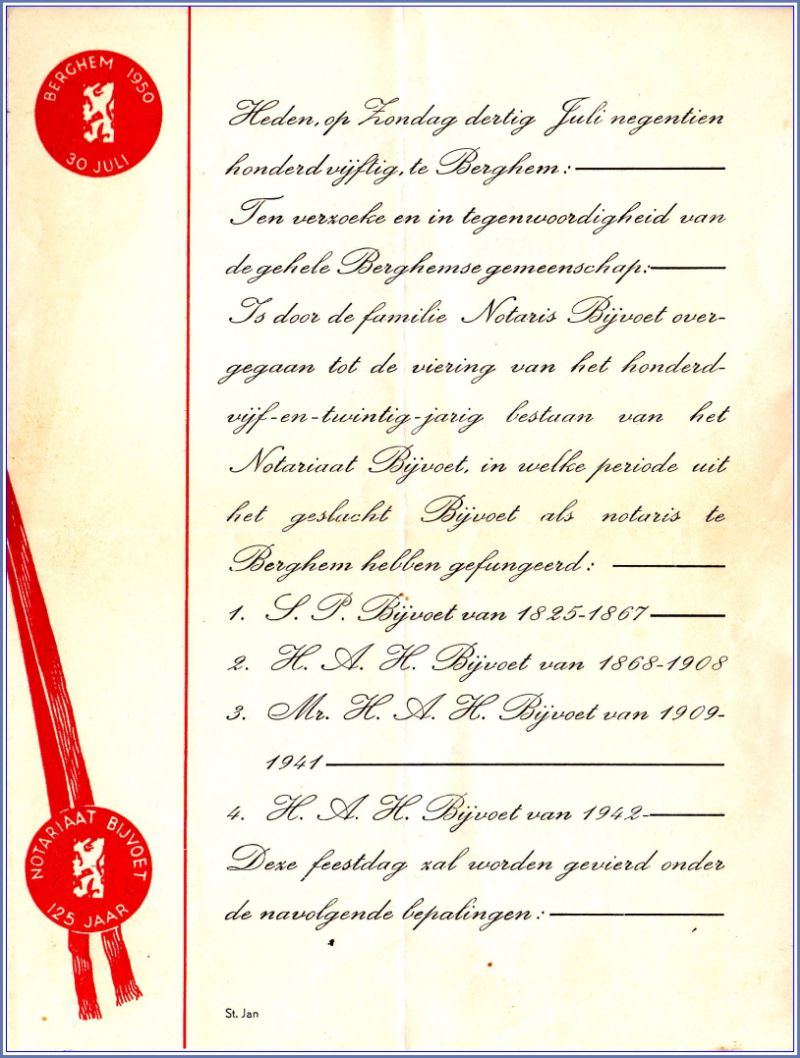 BERGHEM 1950
30 JULI
Heden, op Zondag dertig Juli negentien
honderd vijftig, te Berghem:
Ten verzoeke en in tegenwoordigheid van
de gehele Berghemse gemeenschap:
Is door de familie Notaris Bijvoet over-
gegaan tot de viering van het honderd-
vijf-en-twintig-jarig bestaan van het
Notariaat Bijvoet, in welke periode uit
het geslacht Bijvoet als notaris te
Berghem hebben gefungeerd:
1. S. P. Bijvoet van 1825-1867
2. H. A. H. Bijvoet van 1868-1908
3. Mr. H. A. H. Bijvoet van 1909-
1941
4. H. A. H. Bijvoet van 1942-
Deze feestdag zal worden gevierd onder
de navolgende bepalingen:
NOTARIAAT BIJVOET
125 JAAR
St. Jan